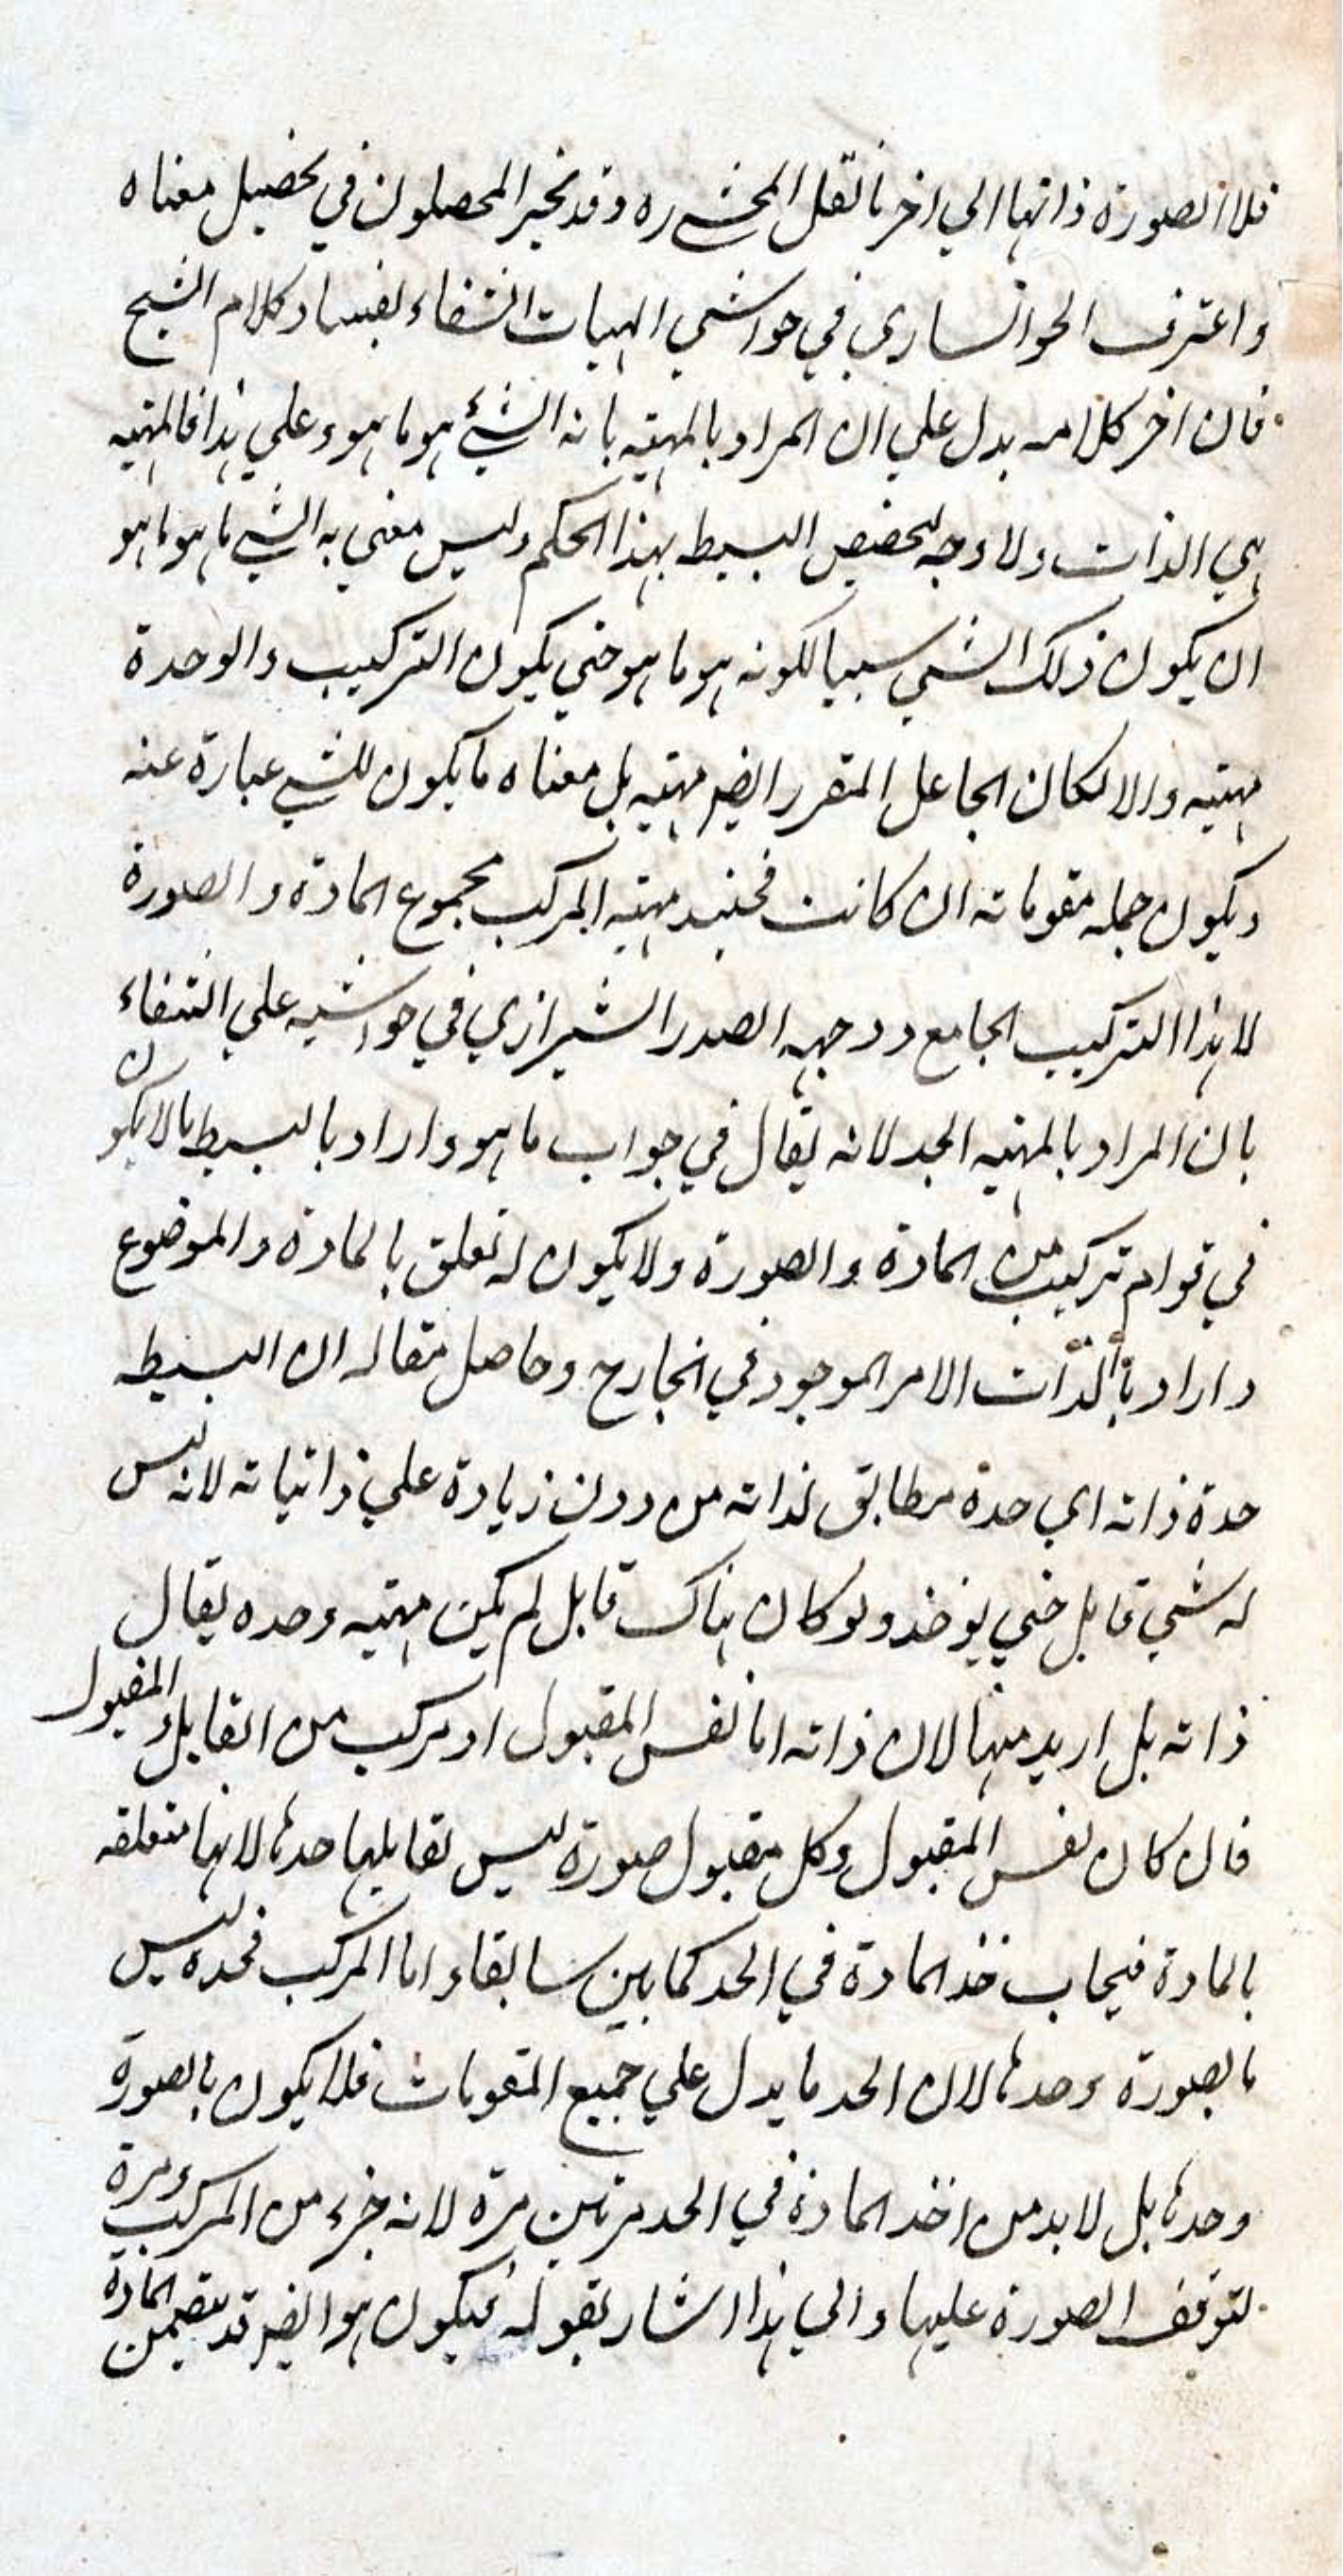 فلا الصورة ذاتها الي اخر ما نقل المحشي ره وقد تحير المحصلون في تحصيل معناه
واعترف الخوانساري في حواشي الهيات الشفاء بفساد كلام الشيخ
فان اخر كلامه يدل علي ان المراد بالمهية ما به الشيء هو ما هو وعلي هذا فالمهية
هي الذات ولا وجه لتخصيص البسيط بهذا الحكم وليس معني ما به الشي ما هو ما هو
ان يكون ذلك الشي سببا لكونه هو ما هو حتي يكون التركيب والوحدة
مهية والا لكان الجاعل المتقرر ايضا مهية بل معناه ما يكون للشي عبارة عنه
ويكون جملة مقوماته ان كانت فحينئذ مهية المركب مجموع المادة والصورة
لا هذا التركيب الجامع ووجهه الصدر الشيرازي في حواشيه علي الشفاء
بان المراد بالمهية الحد لانه يقال في جواب ما هو واراد بالبسيط ما لا يكون
في قوامه تركيب من المادة والصورة ولا يكون له تعلق بالمادة والموضوع
واراد بالذات الامر الموجود في الخارج وحاصل مقاله ان البسيط
حدة ذاته اي حدة مطابق لذاته من دون زيادة علي ذاتياته لانه ليس
له شي قابل حتي يوخذ ولو كان هناك قابل لم يكن مهية وحده يقال
ذاته بل ازيد منها لان ذاته اما نفس المقبول او مركب من القابل والمقبول
فان كان نفس المقبول وكل مقبول صورة ليس تقابلها حدها لانها متعلقة
بالمادة فيجاب خذ المادة في الحد كما بين سابقا واما المركب فحده ليس
بالصورة وحدها لان الحد ما يدل علي جميع المقومات فلا يكون بالصورة
وحدها بل لا بد من اخذ المادة في الحد مرتين مرة لانه جزء من المركب ومرة
لتوقف الصورة عليها والي هذا اشار بقوله فيكون هو ايضا قد يتضمن المادة